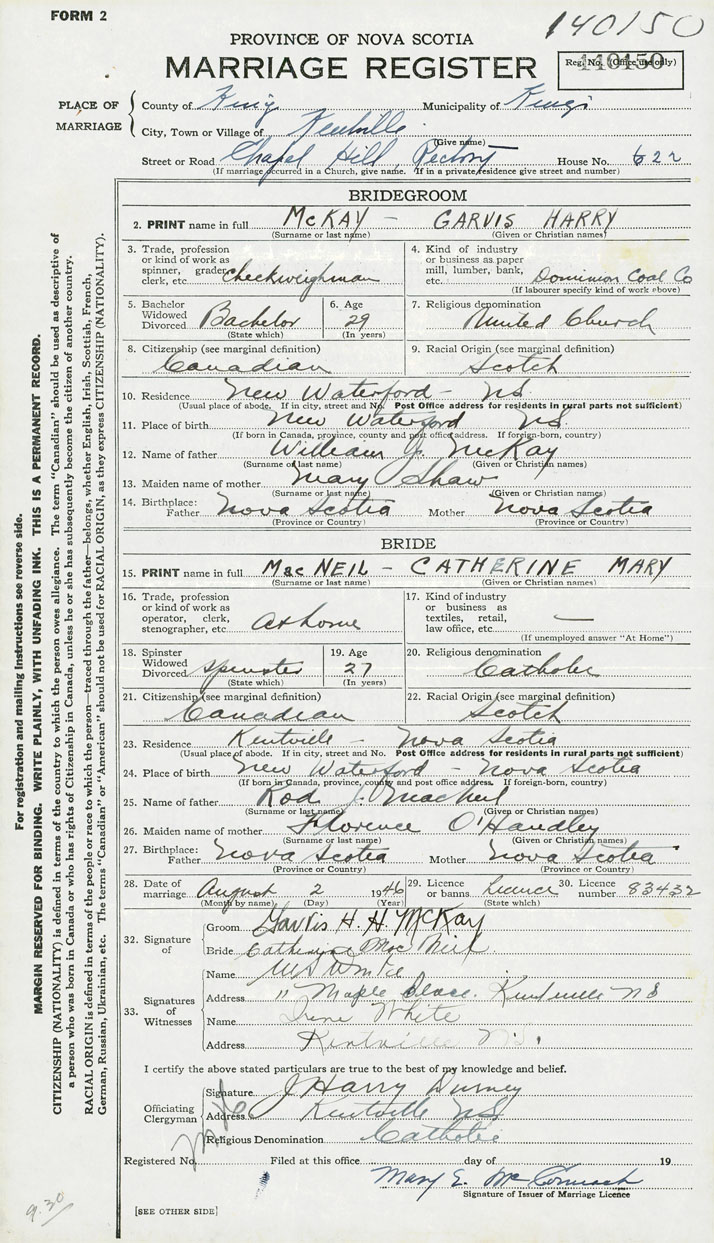 FORM 2
140150
PROVINCE OF NOVA SCOTIA
MARRIAGE REGISTER
Reg. No. (Office use only)
140150
PLACE OF MARRIAGE
County of Kings Municipality of Kings
City, Town or Village of Kentville
(Give name)
Street or Road Chapel Hill, Rectory House No. 622
(If marriage occurred in a Church, give name. If in a private residence give street and number)
BRIDEGROOM
2. PRINT name in full McKAY – GARVIS HARRY
(Surname or last name) (Given or Christian names)
3. Trade, profession or kind of work as spinner, grader, clerk, etc. Checkweighman
4. Kind of industry or business as paper mill, lumber, bank, etc. Dominion Coal Co
(If labourer specify kind of work above)
5. Bachelor Widowed Divorced Bachelor (State which)
6. Age 29 (In years)
7. Religious denomination United Church
8. Citizenship (see marginal definition) Canadian
9. Racial Origin (see marginal definition) Scotch
10. Residence New Waterford – NS
(Usual place of abode. If in city, street and No. Post Office address for residents in rural parts not sufficient)
11. Place of birth New Waterford NS.
(If born in Canada, province, county and post office address. If foreign-born, country)
12. Name of father William J. McKay
(Surname or last name) (Given or Christian names)
13. Maiden name of mother Mary Shaw
(Surname or last name) (Given or Christian names)
14. Birthplace: Father Nova Scotia Mother Nova Scotia
(Province or Country) (Province or Country)
BRIDE
15. PRINT name in full MacNEIL – CATHERINE MARY
(Surname or last name) (Given or Christian names)
16. Trade, profession or kind of work as operator, clerk, stenographer, etc. At home
17. Kind of industry or business as textiles, retail, law office, etc. —
(If unemployed answer "At Home")
18. Spinster Widowed Divorced Spinster (State which)
19. Age 27 (In years)
20. Religious denomination Catholic
21. Citizenship (see marginal definition) Canadian
22. Racial Origin (see marginal definition) Scotch
23. Residence Kentville – Nova Scotia
(Usual place of abode. If in city, street and No. Post Office address for residents in rural parts not sufficient)
24. Place of birth New Waterford – Nova Scotia
(If born in Canada, province, county and post office address. If foreign-born, country)
25. Name of father Rod. J. MacNeil
(Surname or last name) (Given or Christian names)
26. Maiden name of mother Florence O'Handley
(Surname or last name) (Given or Christian names)
27. Birthplace: Father Nova Scotia Mother Nova Scotia
(Province or Country) (Province or Country)
28. Date of marriage August 2 1946
(Month by name) (Day) (Year)
29. Licence or banns Licence (State which)
30. Licence number 83432
32. Signature of
Groom Garvis H. H. McKay
Bride Catherine MacNeil
33. Signatures of Witnesses
Name
Address 11 Maple Place. Kentville NS
Name Irene White
Address Kentville N.S.
I certify the above stated particulars are true to the best of my knowledge and belief.
Officiating Clergyman
Signature J Harry Durney
Address Kentville NS
Religious Denomination Catholic
Registered No. Filed at this office day of 19
Mary E. McCormack
Signature of Issuer of Marriage Licence
[SEE OTHER SIDE]
9.30
For registration and mailing instructions see reverse side.
MARGIN RESERVED FOR BINDING. WRITE PLAINLY, WITH UNFADING INK. THIS IS A PERMANENT RECORD.
CITIZENSHIP (NATIONALITY) is defined in terms of the country to which the person owes allegiance. The term "Canadian" should be used as descriptive of
a person who was born in Canada or who has rights of Citizenship in Canada, unless he or she has subsequently become the citizen of another country.
RACIAL ORIGIN is defined in terms of the people or race to which the person—traced through the father—belongs, whether English, Irish, Scottish, French,
German, Russian, Ukrainian, etc. The terms "Canadian" or "American" should not be used for RACIAL ORIGIN, as they express CITIZENSHIP (NATIONALITY).